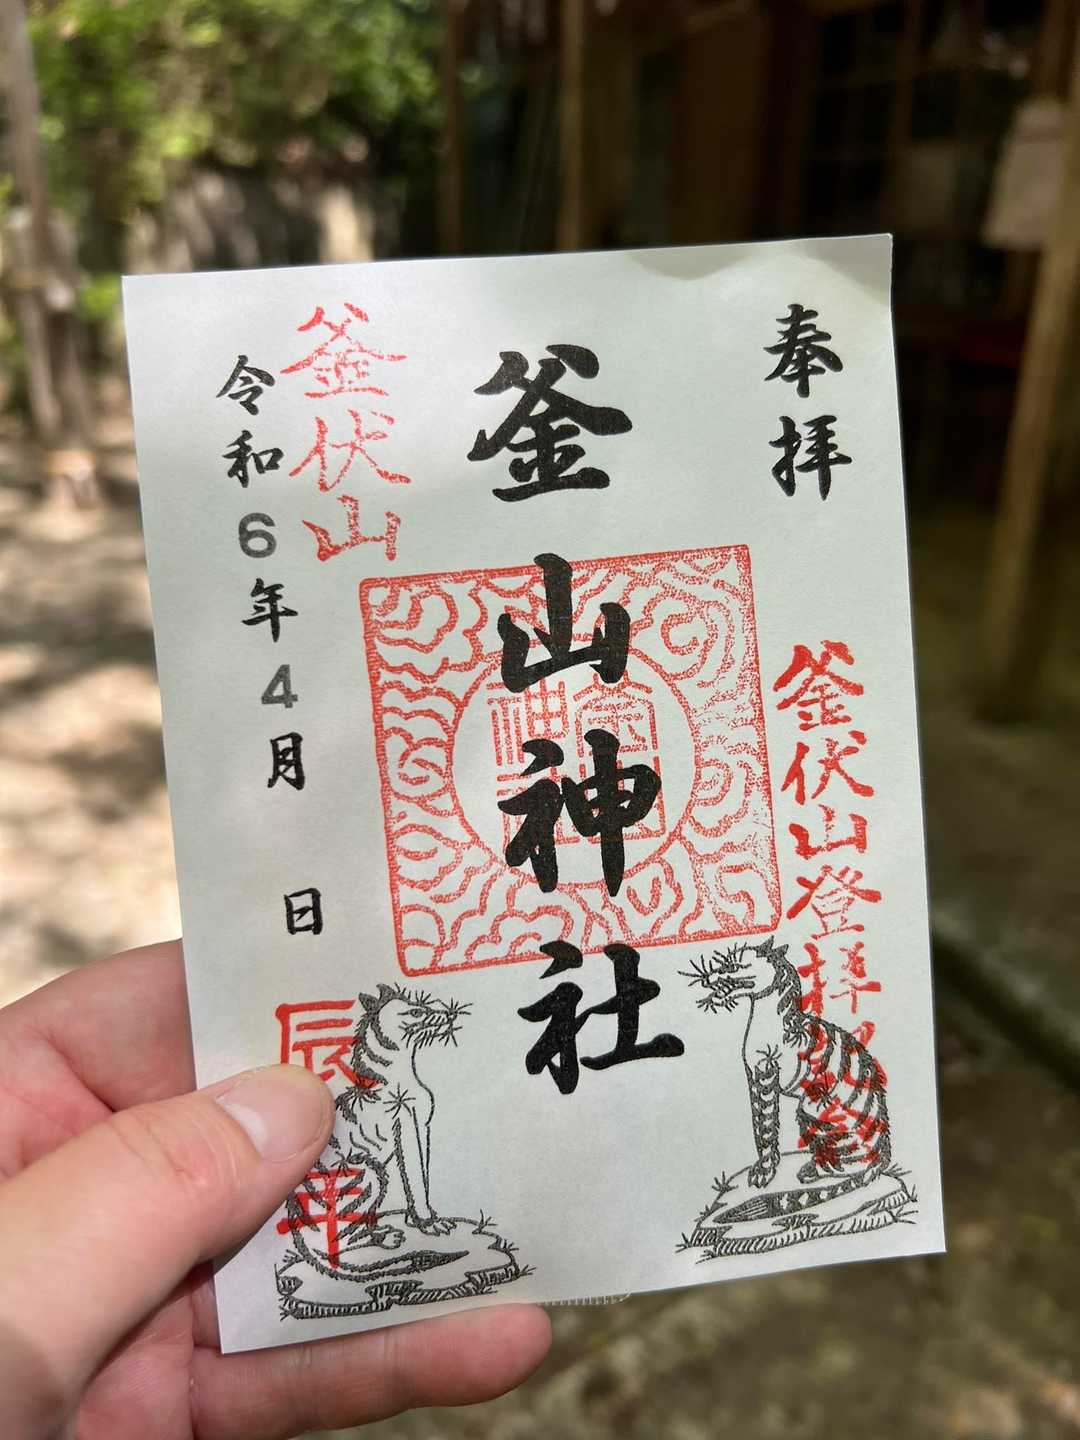 奉拝
釜伏山登拝記念
釜山神社
釜伏山
令和6年4月 日
辰年